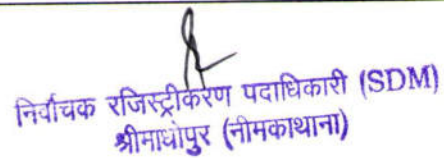 निर्वाचक रजिस्ट्रीकरण पदाधिकारी (SDM)
श्रीमाधोपुर (नीमकाथाना)